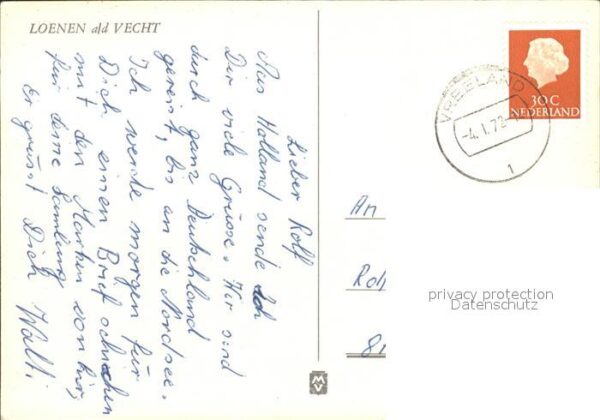 LOENEN a/d VECHT
Lieber Rolf
Aus Holland sende ich
Dir viele Grüsse. Wir sind
durch ganz Deutschland
gereist, bis an die Nordsee.
Ich werde morgen für
Dich einen Brief schicken
mit den Marken von hir,
für deine Samlung
Er grüsst Dich Walti
VREELAND
-4.1.72
1
30 C
NEDERLAND
An
Rol
privacy protection
Datenschutz
MV